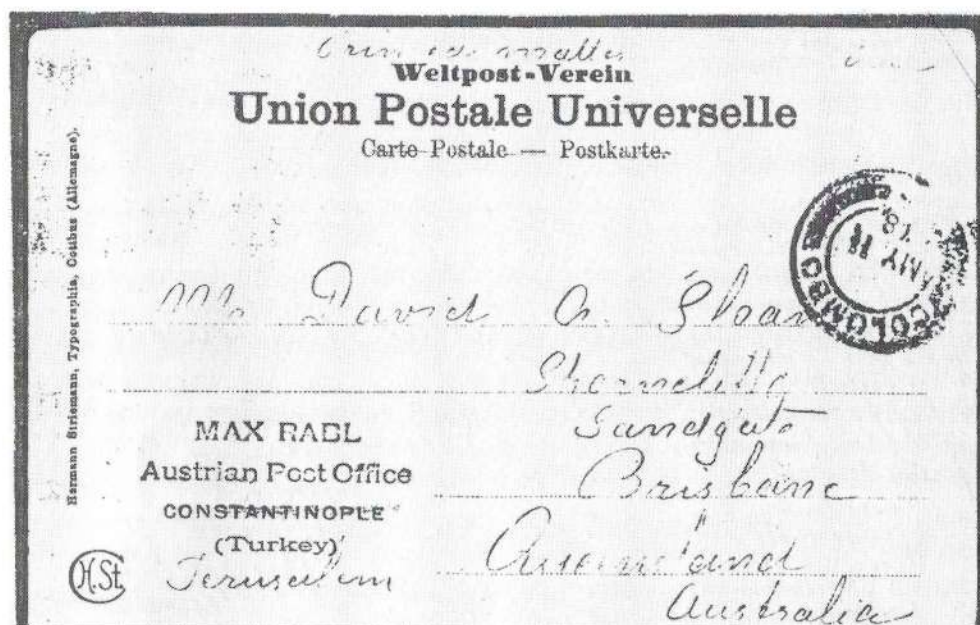 Printed matter
Weltpost-Verein
Union Postale Universelle
Carte Postale — Postkarte.
Hermann Striemann, Typographia, Costibus (Allemagne).
COLOMBO
MY 11
Mr David A. Sloan
Sandgate
Brisbane
Queensland
Australia
MAX RABL
Austrian Post Office
CONSTANTINOPLE
(Turkey)
Jerusalem
H.St.